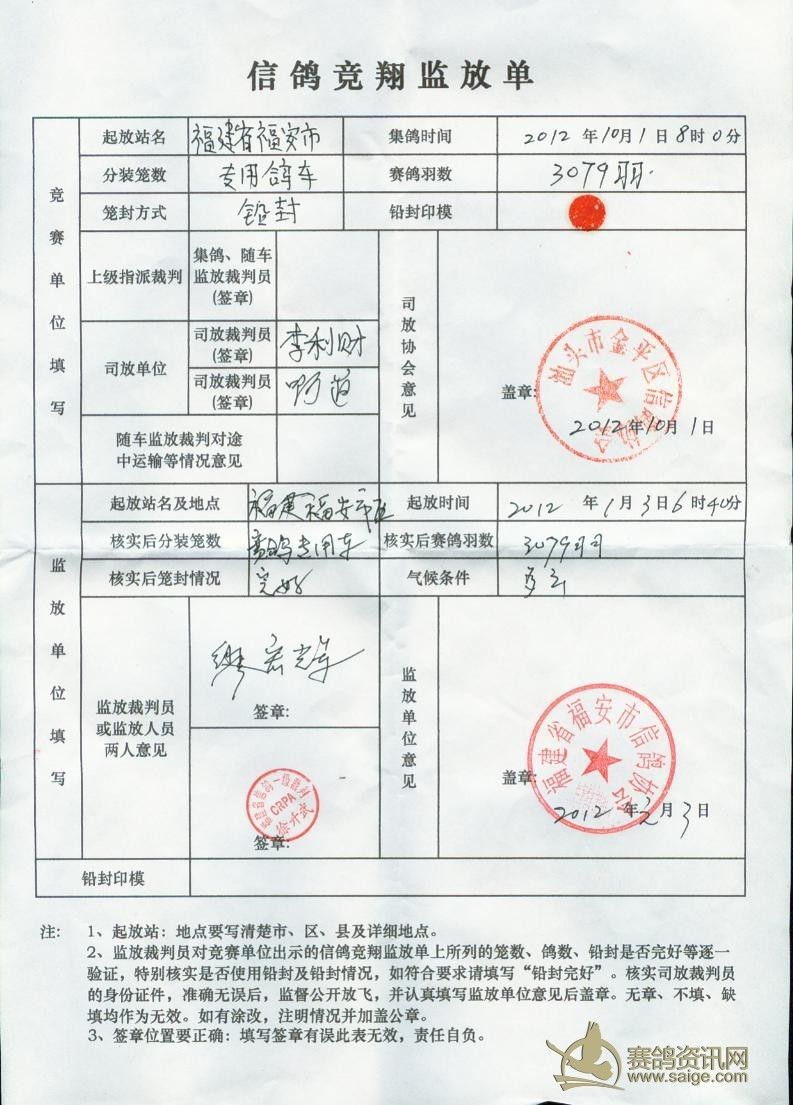 信鸽竞翔监放单
竞赛单位填写
起放站名 福建省福安市 集鸽时间 2012年10月1日8时0分
分装笼数 专用鸽车 赛鸽羽数 3079羽
笼封方式 铅封 铅封印模
上级指派裁判 集鸽、随车
监放裁判员
(签章)
司放单位 司放裁判员
(签章) 李利财
司放裁判员
(签章)
司放协会意见
汕头市金平区信鸽协会
盖章:
2012年10月1日
随车监放裁判对途
中运输等情况意见
监放单位填写
起放站名及地点 福建福安市区 起放时间 2012年1月3日6时40分
核实后分装笼数 赛鸽专用车 核实后赛鸽羽数 3079羽
核实后笼封情况 完好 气候条件 多云
监放裁判员
或监放人员
两人意见
签章:
CRPA
徐才武
签章:
监放单位意见
福建省福安市信鸽协会
盖章:
2012年 月3日
铅封印模
注: 1、起放站:地点要写清楚市、区、县及详细地点。
2、监放裁判员对竞赛单位出示的信鸽竞翔监放单上所列的笼数、鸽数、铅封是否完好等逐一
验证,特别核实是否使用铅封及铅封情况,如符合要求请填写“铅封完好”。核实司放裁判员
的身份证件,准确无误后,监督公开放飞,并认真填写监放单位意见后盖章。无章、不填、缺
填均作为无效。如有涂改,注明情况并加盖公章。
3、签章位置要正确:填写签章有误此表无效,责任自负。
赛鸽资讯网
www.saige.com